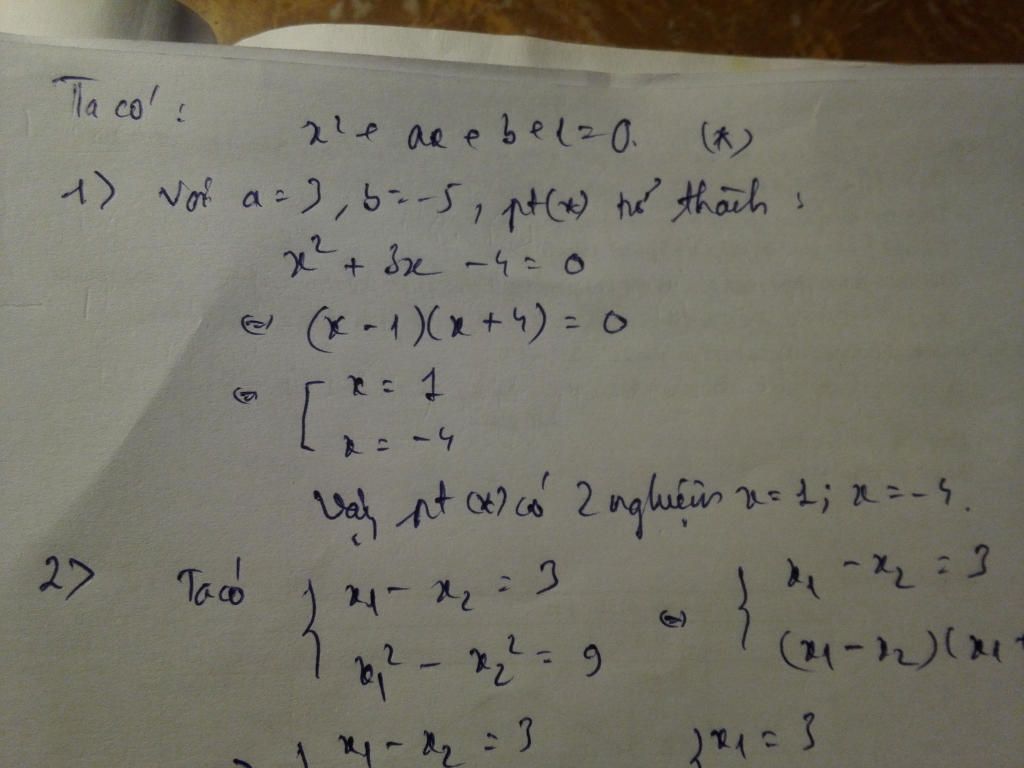 Ta có :
x² + ax + b + 1 = 0. (*)
1) Với a = 3, b = -5, pt (*) trở thành :
x² + 3x - 4 = 0
⇔ (x - 1)(x + 4) = 0
⇔ [ x = 1
x = -4
Vậy pt (*) có 2 nghiệm x = 1; x = -4.
2) Ta có { x₁ - x₂ = 3
x₁² - x₂² = 9
⇔ { x₁ - x₂ = 3
(x₁ - x₂)(x₁ +
{ x₁ - x₂ = 3
{ x₁ = 3